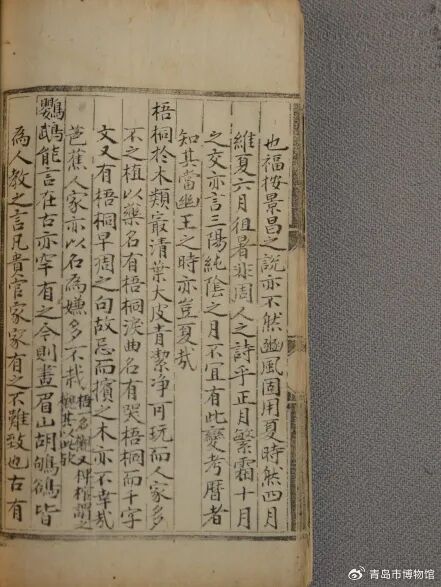 也福按景昌之說亦不然豳風固用夏時然四月
維夏六月徂暑非周人之詩乎正月繁霜十月
之交亦言三陽純陰之月不宜有此變考曆者
知其當幽王之時亦豈夏哉
梧桐於木類㝡清葉大皮青潔淨可玩而人家多
不之植以藥名有梧桐淚曲名有哭梧桐而千字
文又有梧桐早凋之句故忌而擯之木亦不幸哉
芭蕉人家亦以名為嫌多不栽梧一名櫬又謂之其以此故
鸚鵡能言在古亦罕有之今則畫眉山胡鴝鵒皆
為人教之言凡貴官家家有之不難致也古有
@青岛市博物馆